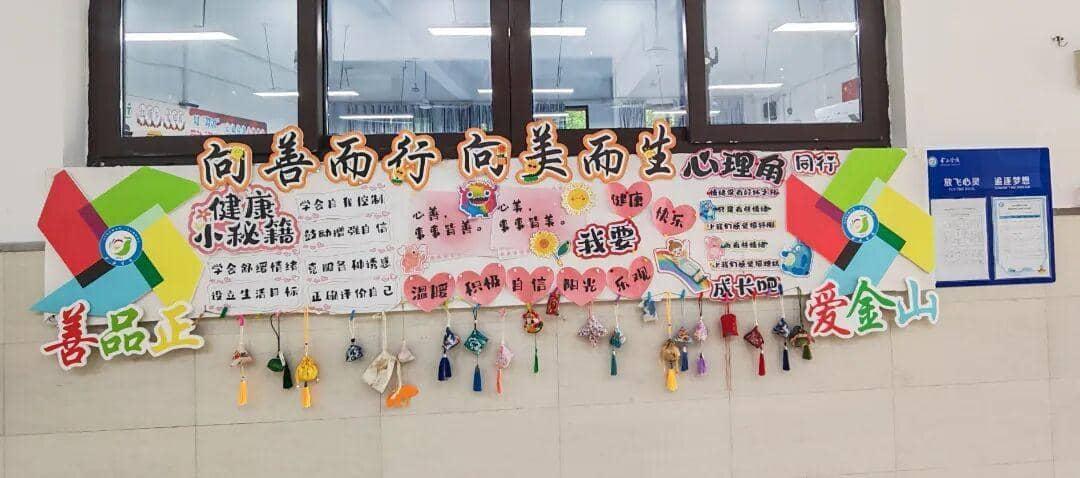 向善而行 向美而生 心理角 同行
健康
小秘籍
学会自我控制
鼓励增强自信
学会舒缓情绪 克服各种诱惑
设立生活目标 正确评价自己
心善,
事事皆善。
心美,
事事皆美。
我要
健康
快乐
温暖 积极 自信 阳光 乐观
情绪没有好坏之分
成长吧
善品正
爱金山
放飞心灵 追逐梦想